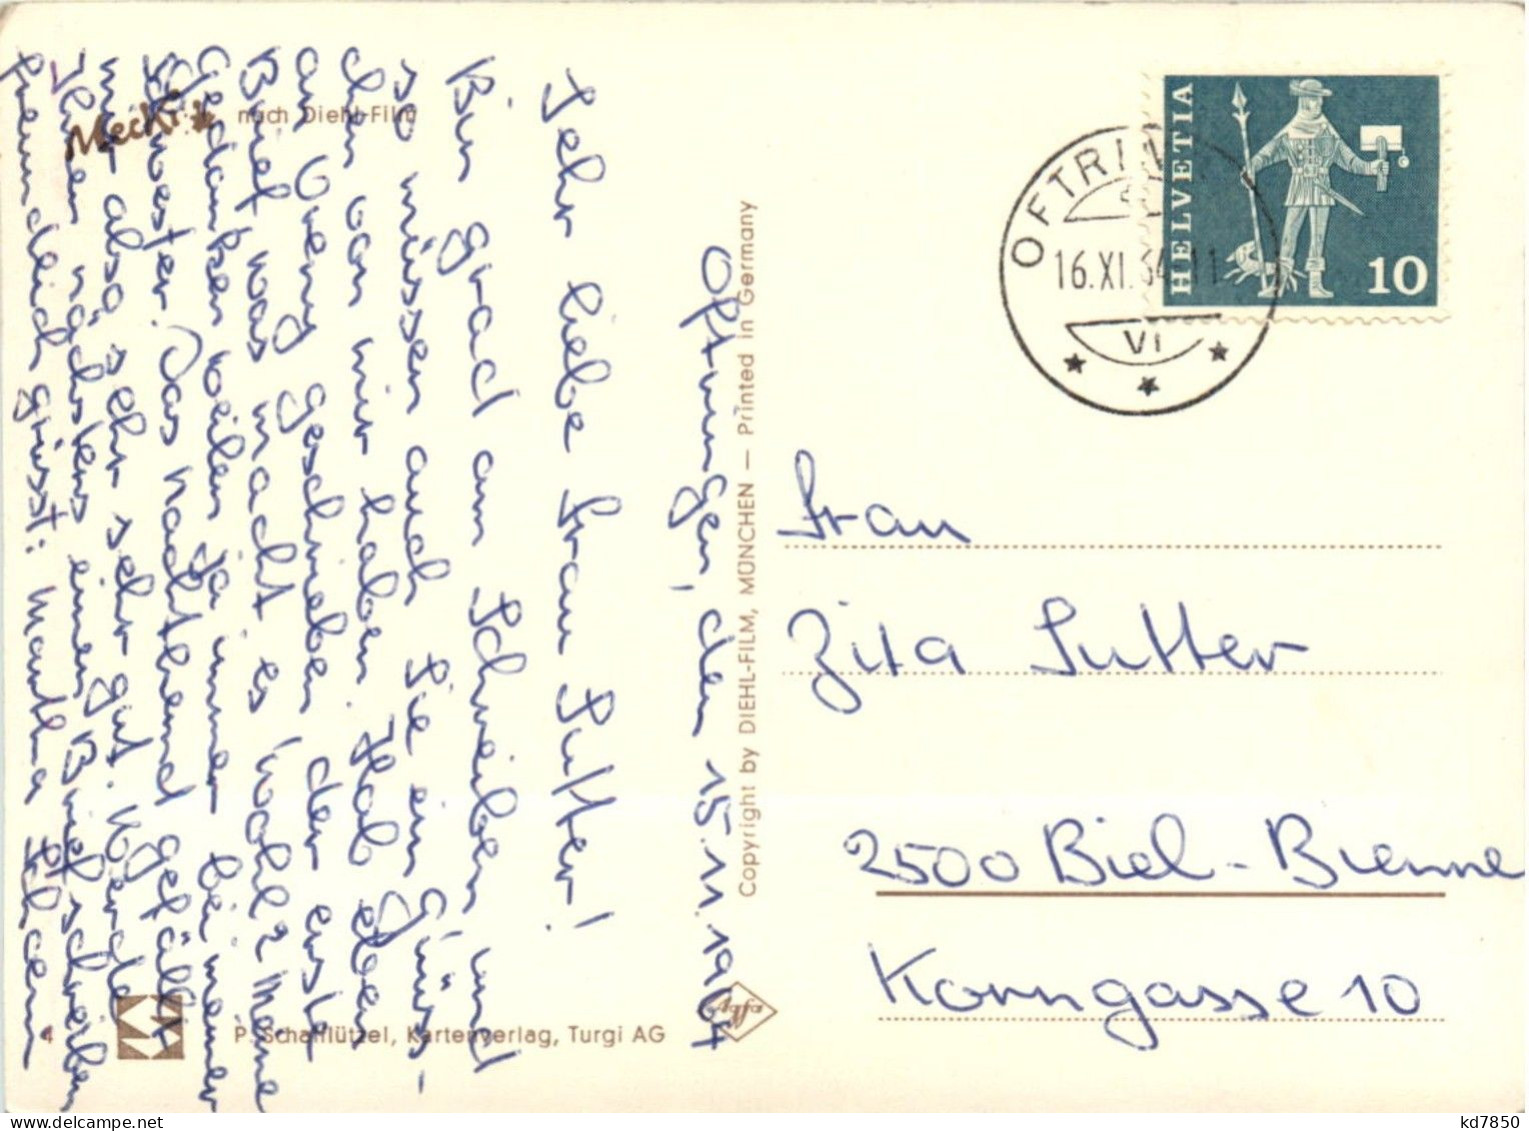 Mecki nach Diehl-Film
Oftringen, den 15.11.1964
Sehr liebe Frau Sutter!
Bin grad am Schreiben und
so müssen auch Sie ein Grüss-
chen von mir haben. Hab eben
an Vreny geschrieben, der erste
Brief was macht es wohl? Meine
Gedanken weilen ja immer bei meiner
Schwester. Das Nachthemd gefällt
mir also sehr sehr gut. Werde
Ihnen nächstens einen Brief schreiben
Freundlich grüsst: Martha
4
P. Schafflützel, Kartenverlag, Turgi AG
Copyright by DIEHL-FILM, MÜNCHEN — Printed in Germany
Agfa
HELVETIA
10
OFTRIN
16.XI.64-11
VI
Frau
Zita Sutter
2500 Biel-Bienne
Korngasse 10
kd7850